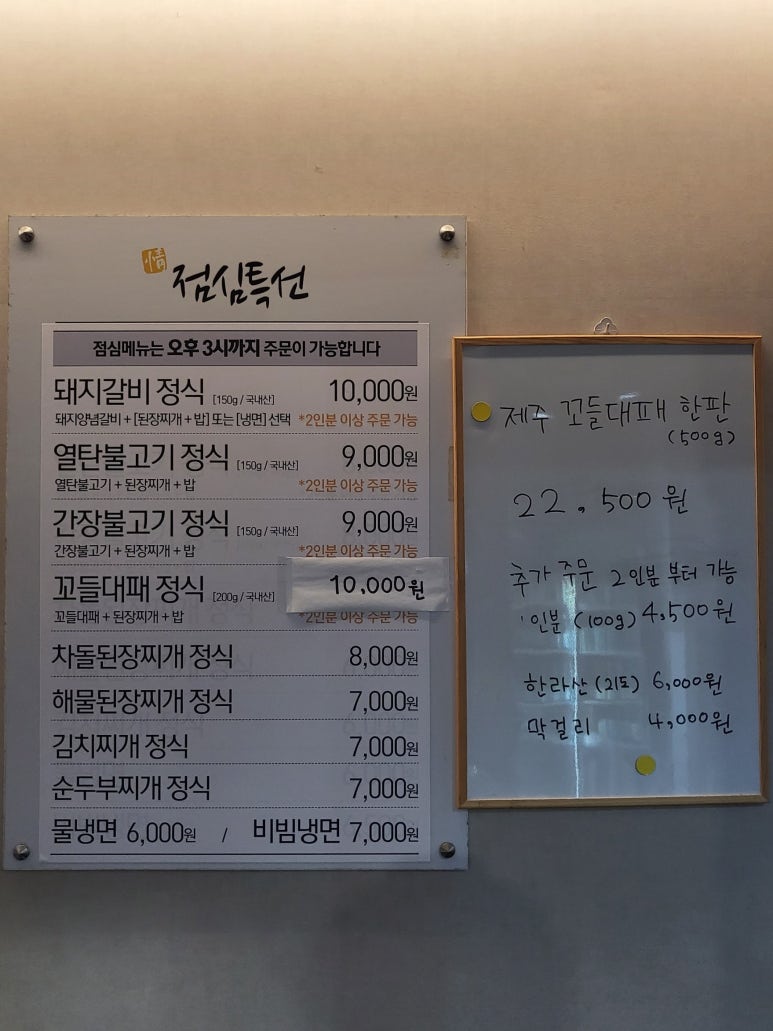 情
점심특선
점심메뉴는 오후 3시까지 주문이 가능합니다
돼지갈비 정식 [150g / 국내산] 10,000원
돼지양념갈비 + [된장찌개 + 밥] 또는 [냉면] 선택 *2인분 이상 주문 가능
열탄불고기 정식 [150g / 국내산] 9,000원
열탄불고기 + 된장찌개 + 밥 *2인분 이상 주문 가능
간장불고기 정식 [150g / 국내산] 9,000원
간장불고기 + 된장찌개 + 밥 *2인분 이상 주문 가능
꼬들대패 정식 [200g / 국내산] 10,000원
꼬들대패 + 된장찌개 + 밥 *2인분 이상 주문 가능
차돌된장찌개 정식 8,000원
해물된장찌개 정식 7,000원
김치찌개 정식 7,000원
순두부찌개 정식 7,000원
물냉면 6,000원 / 비빔냉면 7,000원
제주 꼬들대패 한판
(500g)
22,500원
추가 주문 2인분 부터 가능
1인분 (100g) 4,500원
한라산 (21도) 6,000원
막걸리 4,000원